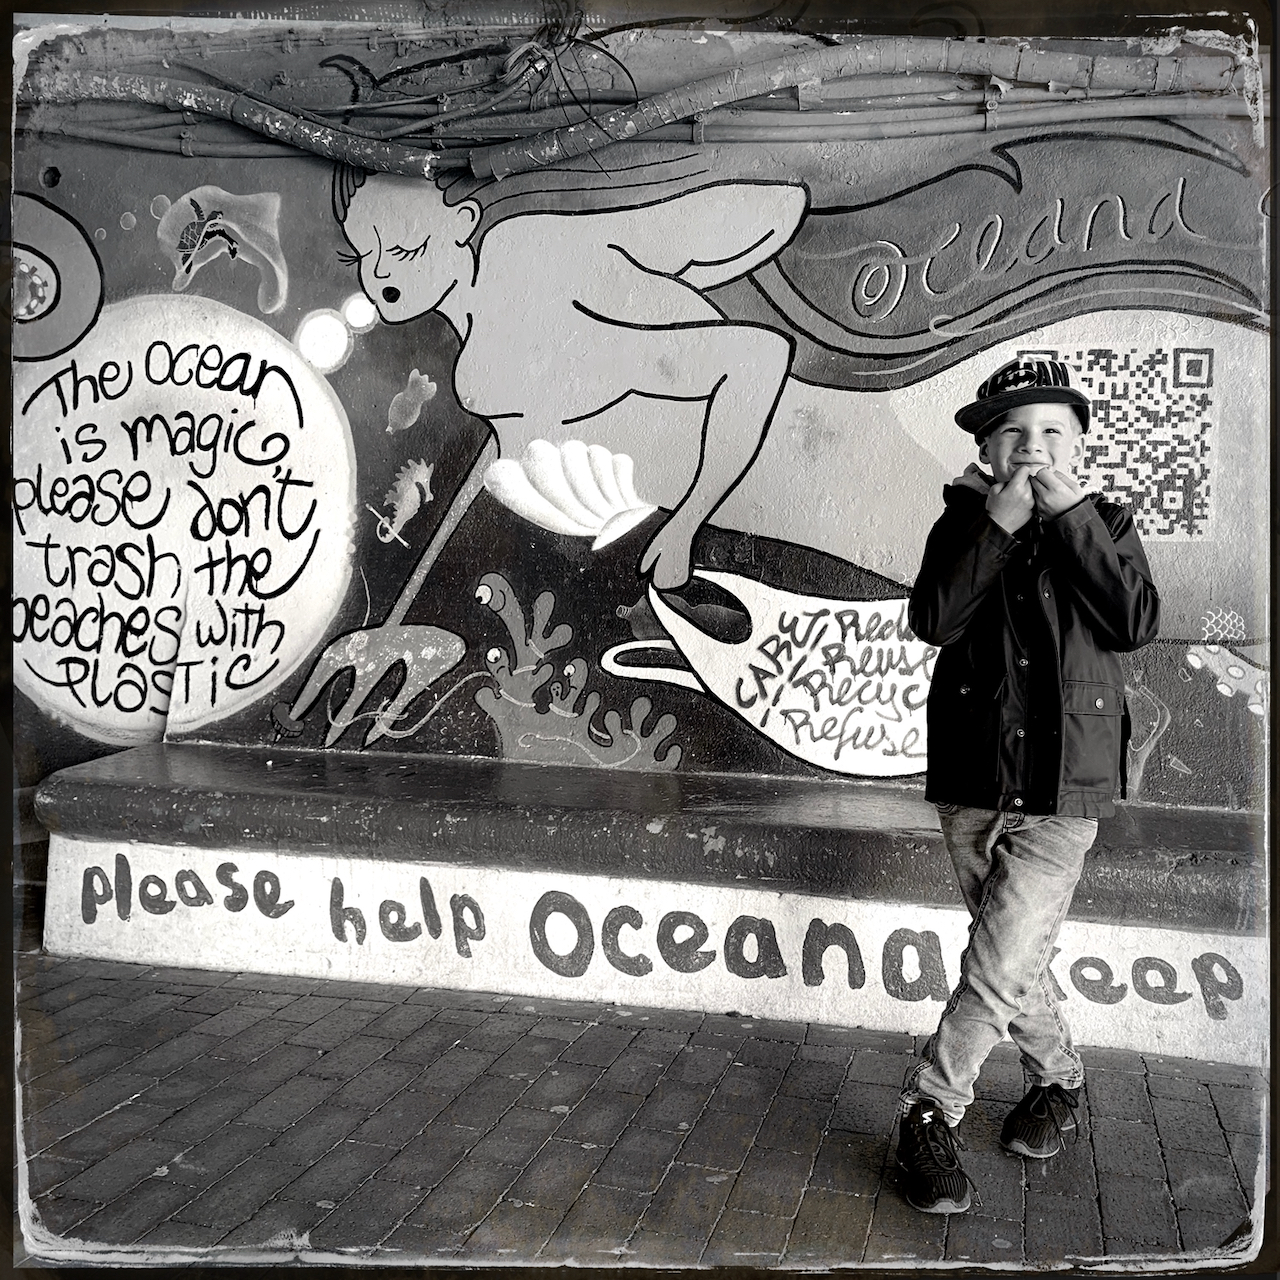 The ocean
is magic,
please don't
trash the
beaches with
PLASTIC
Oceana
Reuse
Refuse
please help Oceana keep